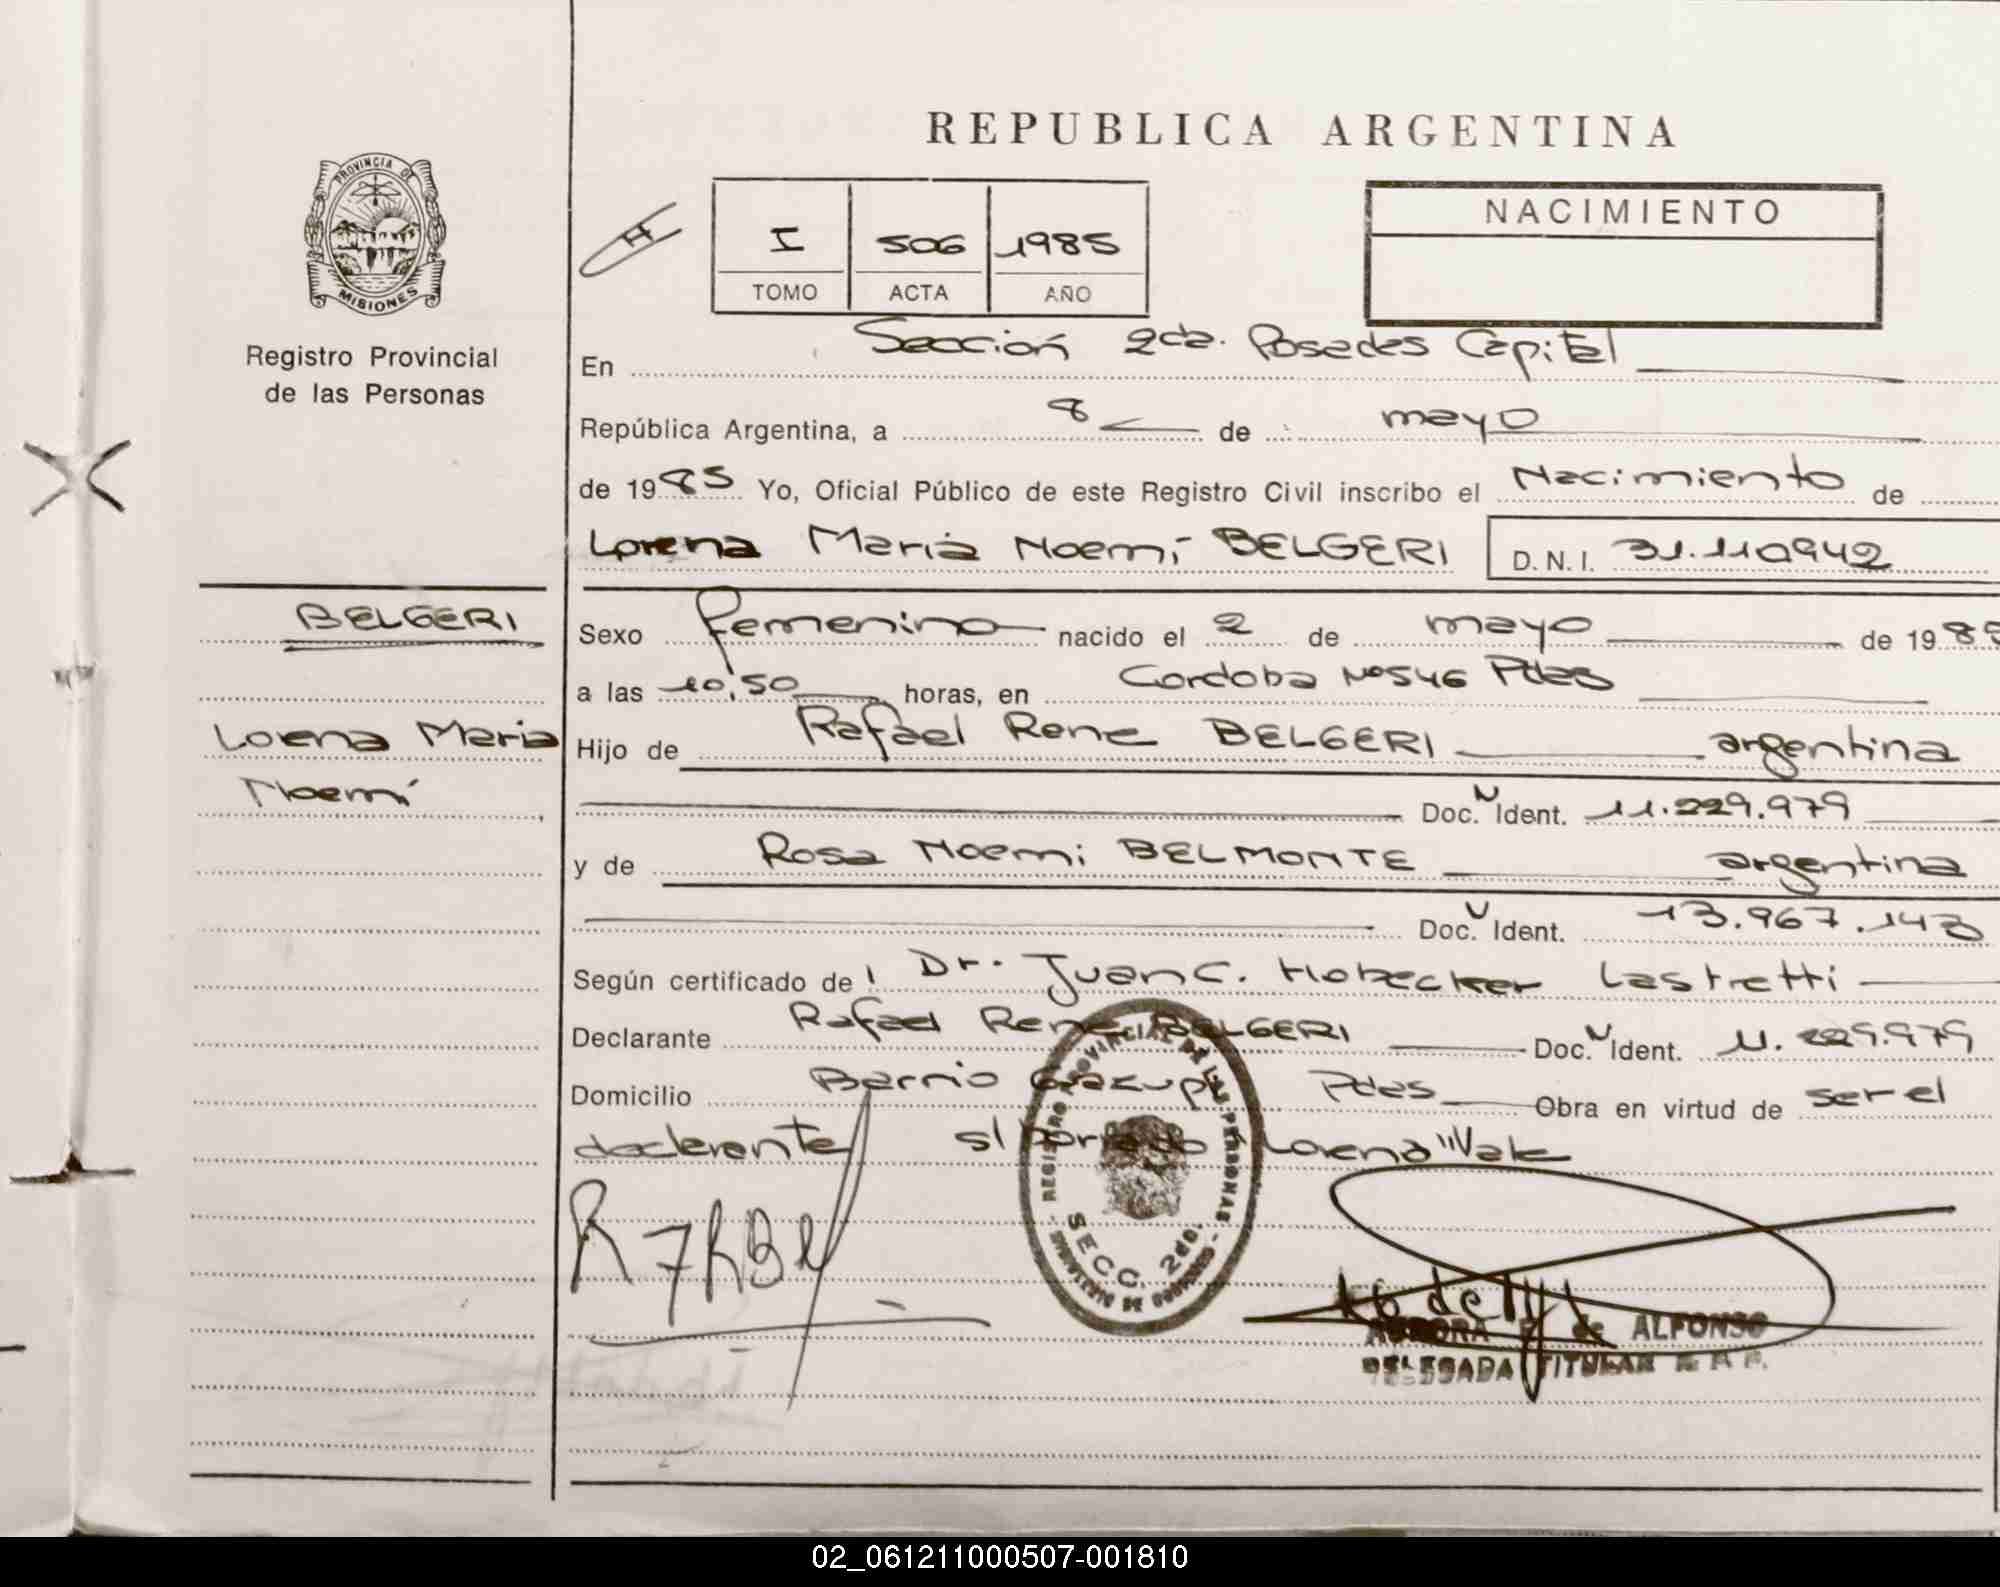 REPUBLICA ARGENTINA
PROVINCIA DE
MISIONES
Registro Provincial
de las Personas
I 506 1985
TOMO ACTA AÑO
NACIMIENTO
En Sección 2da. Posadas Capital
República Argentina, a 8 de mayo
de 1985 Yo, Oficial Público de este Registro Civil inscribo el Nacimiento de
Lorena Maria Noemí BELGERI D. N. I. 31.110942
BELGERI
Lorena Maria
Noemí
Sexo femenino nacido el 2 de mayo de 1985
a las 10,50 horas, en Cordoba Nº 546 Pdas
Hijo de Rafael Rene BELGERI argentina
Doc. N Ident. 11.229.979
y de Rosa Noemi BELMONTE argentina
Doc. Ident. 13.967.143
Según certificado de Dr. Juan C. Lastretti
Declarante Rafael Rene BELGERI Doc. Ident. 11.229.979
Domicilio Barrio Pdas Obra en virtud de ser el
declarante s/ Lorena "Vale
REGISTRO PROVINCIAL DE LAS PERSONAS
SECC. 2da.
de ALFONSO
DELEGADA TITULAR R. P. P.
02_061211000507-001810